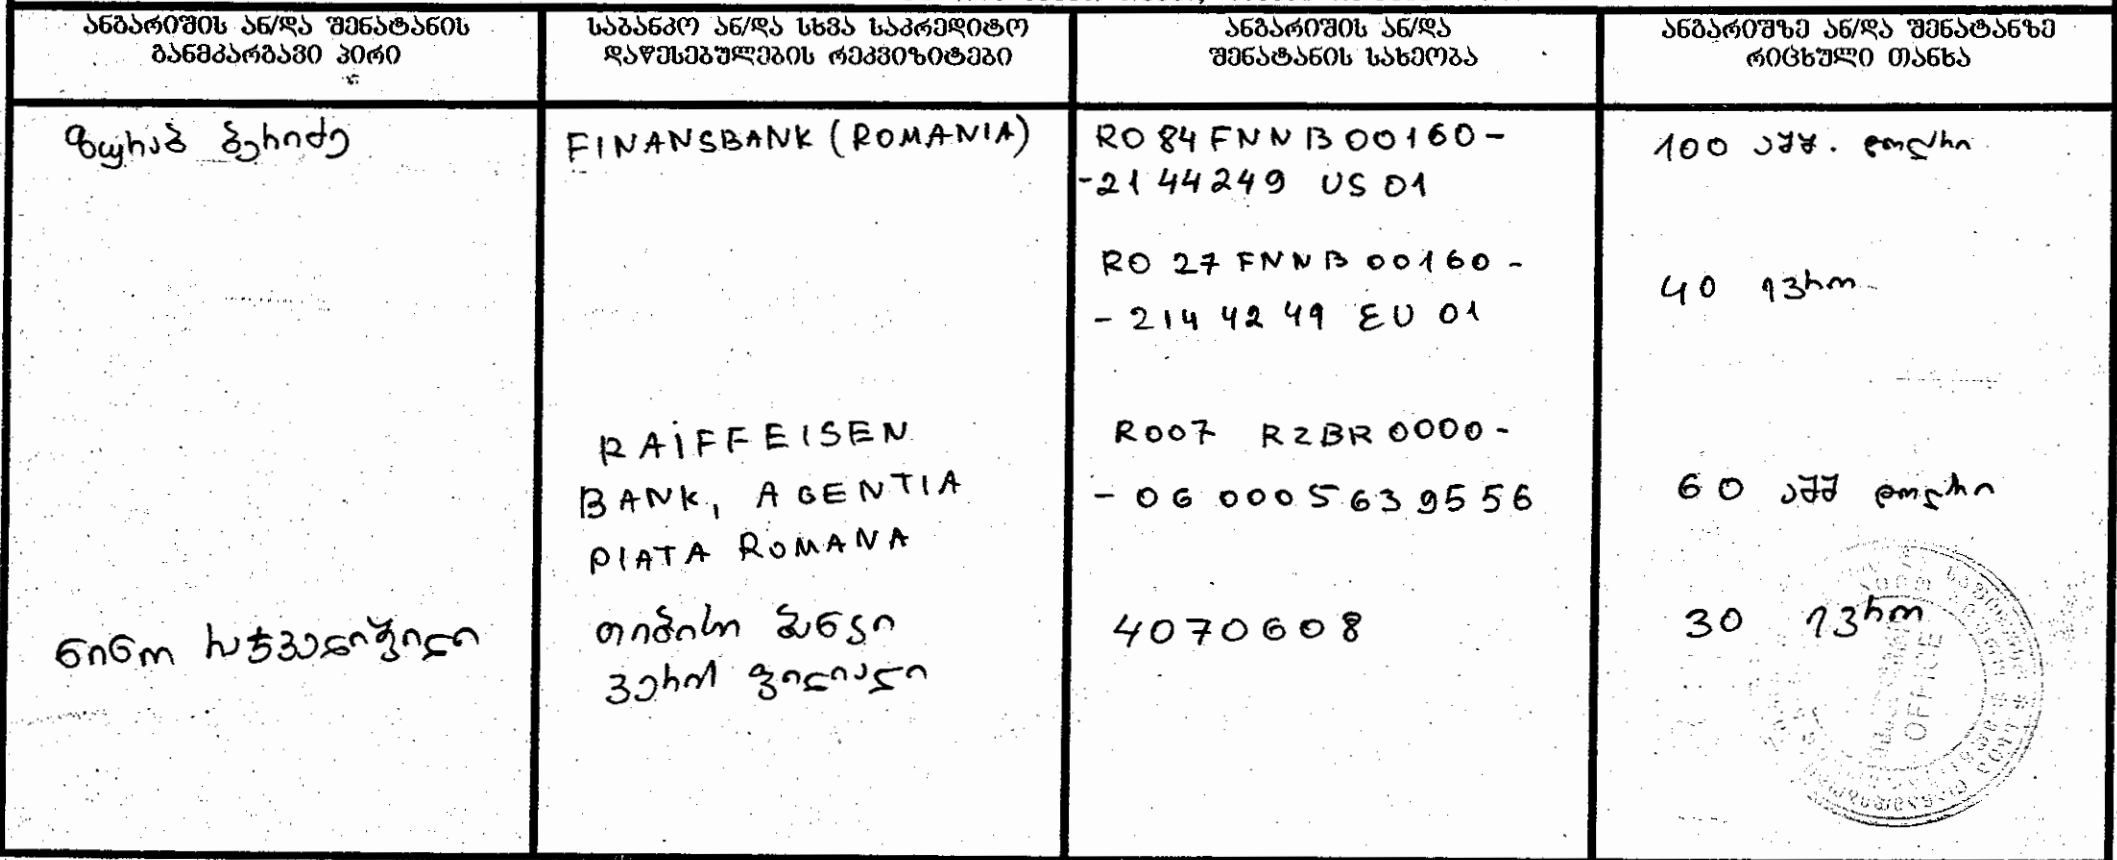 ანგარიშის ან/და შენატანის
განმკარგავი პირი
საბანკო ან/და სხვა საკრედიტო
დაწესებულების რეკვიზიტები
ანგარიშის ან/და
შენატანის სახეობა
ანგარიშზე ან/და შენატანზე
რიცხული თანხა
ზურაბ ბერიძე
FINANSBANK (ROMANIA)
RO 84 FNNB 00160-
-2144249 US 01
100 აშშ. დოლარი
RO 27 FNNB 00160 -
- 214 42 49 EU 01
40 ევრო
RAIFFEISEN
BANK, AGENTIA
PIATA ROMANA
RO07 RZBR 0000-
- 06 000 5639556
60 აშშ დოლარი
ნინო
თიბისი ბანკი
ვერის ფილიალი
4070608
30 ევრო
OFFICE